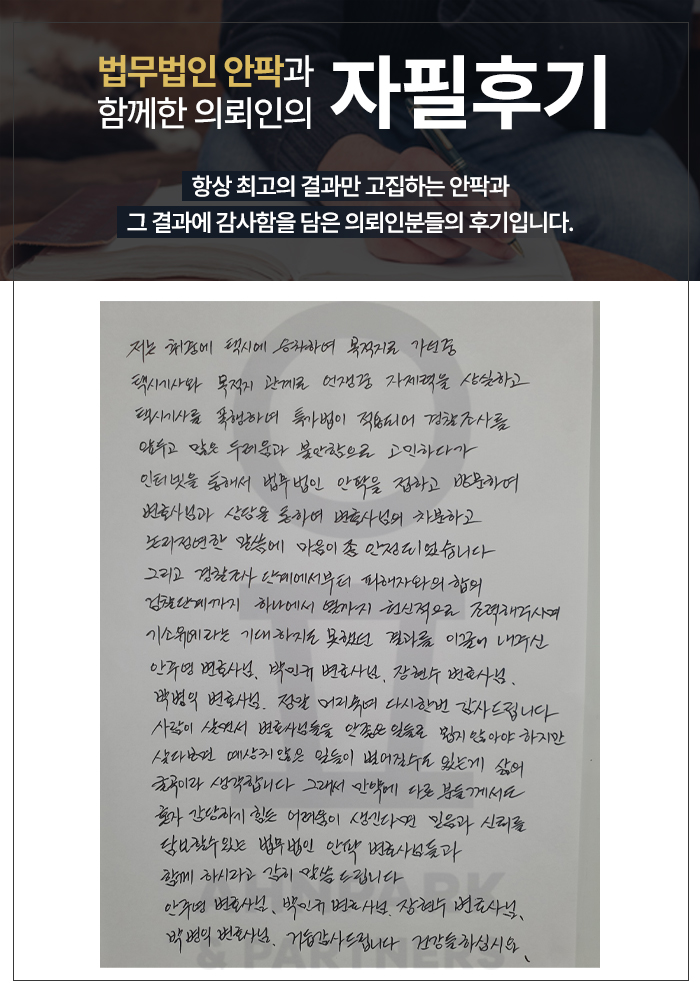 법무법인 안팍과
함께한 의뢰인의
자필후기
항상 최고의 결과만 고집하는 안팍과
그 결과에 감사함을 담은 의뢰인분들의 후기입니다.
저는 최근에 택시에 승차하여 목적지로 가던중
택시기사와 목적지 관계로 언쟁중 자제력을 상실하고
택시기사를 폭행하여 특가법이 적용되어 경찰조사를
앞두고 많은 두려움과 불안함으로 고민하다가
인터넷을 통해서 법무법인 안팍을 접하고 방문하여
변호사님과 상담을 통하여 변호사님의 차분하고
논리정연한 말씀에 마음이 좀 안정되었습니다
그리고 경찰조사 단계에서부터 피해자와의 합의
검찰단계까지 하나에서 열까지 헌신적으로 조력해주시며
기소유예라는 기대하지도 못했던 결과를 이끌어 내주신
안주영 변호사님, 박인규 변호사님, 장현수 변호사님,
박병의 변호사님. 정말 머리숙여 다시한번 감사드립니다
사람이 살면서 변호사님들을 안좋은 일들로 뵙지않아야 하지만
살다보면 예상치않은 일들이 벌어질수도 있는게 삶의
굴곡이라 생각합니다 그래서 만약에 다른 분들께서도
혼자 감당하기 힘든 어려움이 생긴다면 믿음과 신뢰를
담보할수있는 법무법인 안팍 변호사님들과
함께 하시라고 감히 말씀드립니다
안주영 변호사님, 박인규 변호사님, 장현수 변호사님,
박병의 변호사님. 거듭감사드립니다 건강들하십시요,
AHNPARK
& PARTNERS